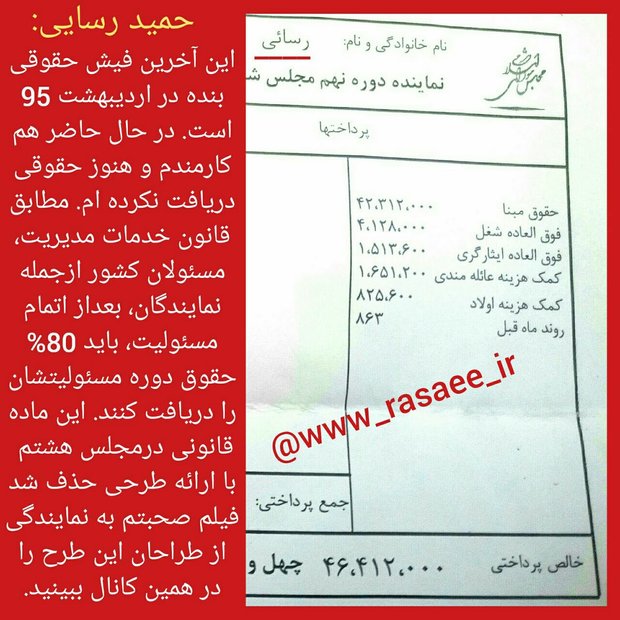 حمید رسایی:
این آخرین فیش حقوقی
بنده در اردیبهشت 95
است. در حال حاضر هم
کارمندم و هنوز حقوقی
دریافت نکرده ام. مطابق
قانون خدمات مدیریت،
مسئولان کشور ازجمله
نمایندگان، بعداز اتمام
مسئولیت، باید 80%
حقوق دوره مسئولیتشان
را دریافت کنند. این ماده
قانونی درمجلس هشتم
با ارائه طرحی حذف شد
فیلم صحبتم به نمایندگی
از طراحان این طرح را
در همین کانال ببینید.
نام خانوادگی و نام: رسائی
نماینده دوره نهم مجلس
پرداختها
حقوق مبنا ۴۲،۳۱۲،۰۰۰
فوق العاده شغل ۴،۱۲۸،۰۰۰
فوق العاده ایثارگری ۱،۵۱۳،۶۰۰
کمک هزینه عائله مندی ۱،۶۵۱،۲۰۰
کمک هزینه اولاد ۸۲۵،۶۰۰
روند ماه قبل ۸۶۳
@www_rasaee_ir
جمع پرداختی:
خالص پرداختی ۴۶،۴۱۲،۰۰۰ چهل و